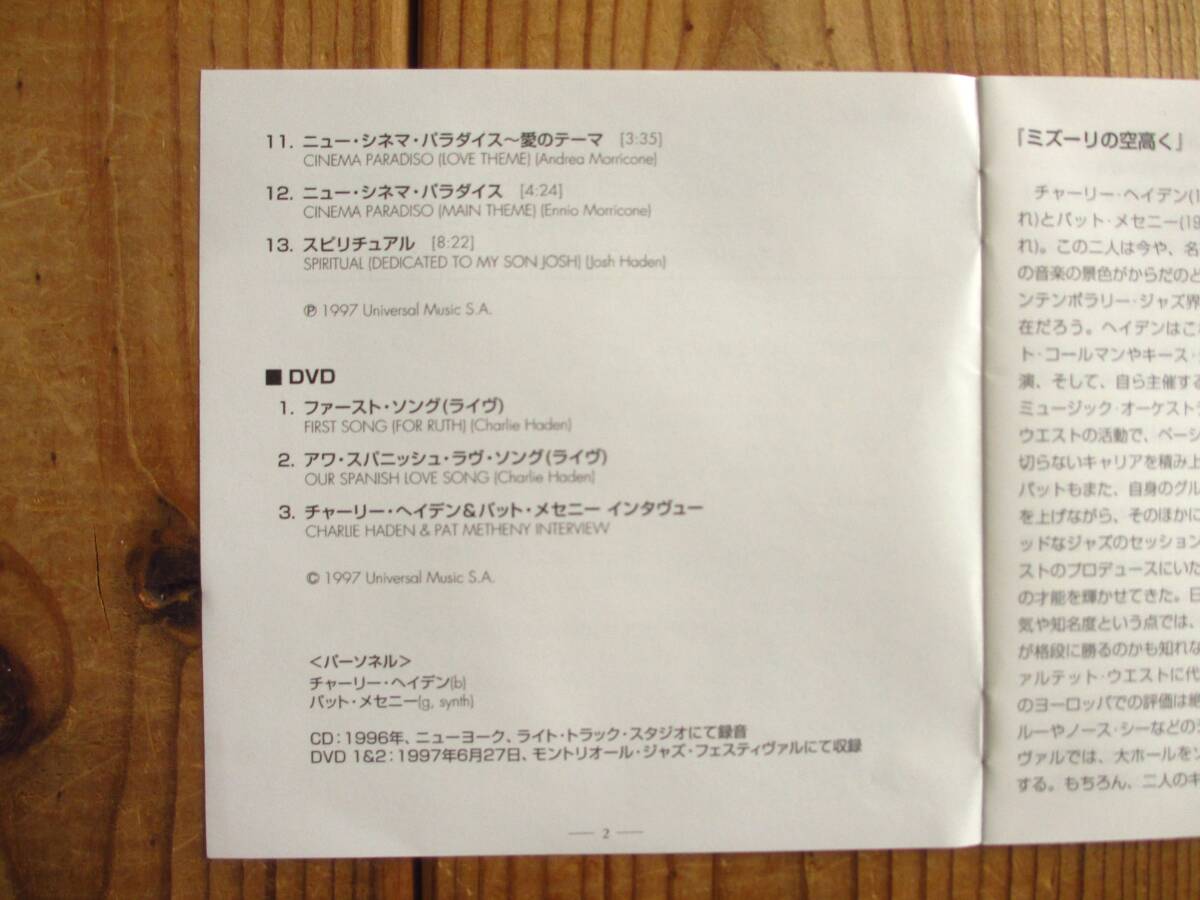 11. ニュー・シネマ・パラダイス〜愛のテーマ [3:35]
CINEMA PARADISO (LOVE THEME) (Andrea Morricone)
12. ニュー・シネマ・パラダイス [4:24]
CINEMA PARADISO (MAIN THEME) (Ennio Morricone)
13. スピリチュアル [8:22]
SPIRITUAL (DEDICATED TO MY SON JOSH) (Josh Haden)
℗ 1997 Universal Music S.A.
■ DVD
1. ファースト・ソング(ライヴ)
FIRST SONG (FOR RUTH) (Charlie Haden)
2. アワ・スパニッシュ・ラヴ・ソング(ライヴ)
OUR SPANISH LOVE SONG (Charlie Haden)
3. チャーリー・ヘイデン&パット・メセニー インタヴュー
CHARLIE HADEN & PAT METHENY INTERVIEW
© 1997 Universal Music S.A.
<パーソネル>
チャーリー・ヘイデン(b)
パット・メセニー(g, synth)
CD:1996年、ニューヨーク、ライト・トラック・スタジオにて録音
DVD 1&2:1997年6月27日、モントリオール・ジャズ・フェスティヴァルにて収録
— 2 —
『ミズーリの空高く』
チャーリー・ヘイデン(1
れ)とパット・メセニー(19
れ)。この二人は今や、名
の音楽の景色がからだのど
ンテンポラリー・ジャズ界
在だろう。ヘイデンはこ
ト・コールマンやキース・
演、そして、自ら主催する
ミュージック・オーケスト
ウエストの活動で、ベーシ
切らないキャリアを積み上
パットもまた、自身のグル
を上げながら、そのほかに
ッドなジャズのセッション
ストのプロデュースにいた
の才能を輝かせてきた。日
気や知名度という点では、
が格段に勝るのかも知れな
ァルテット・ウエストに代
のヨーロッパでの評価は絶
ルーやノース・シーなどの
ヴァルでは、大ホールを
する。もちろん、二人のキ